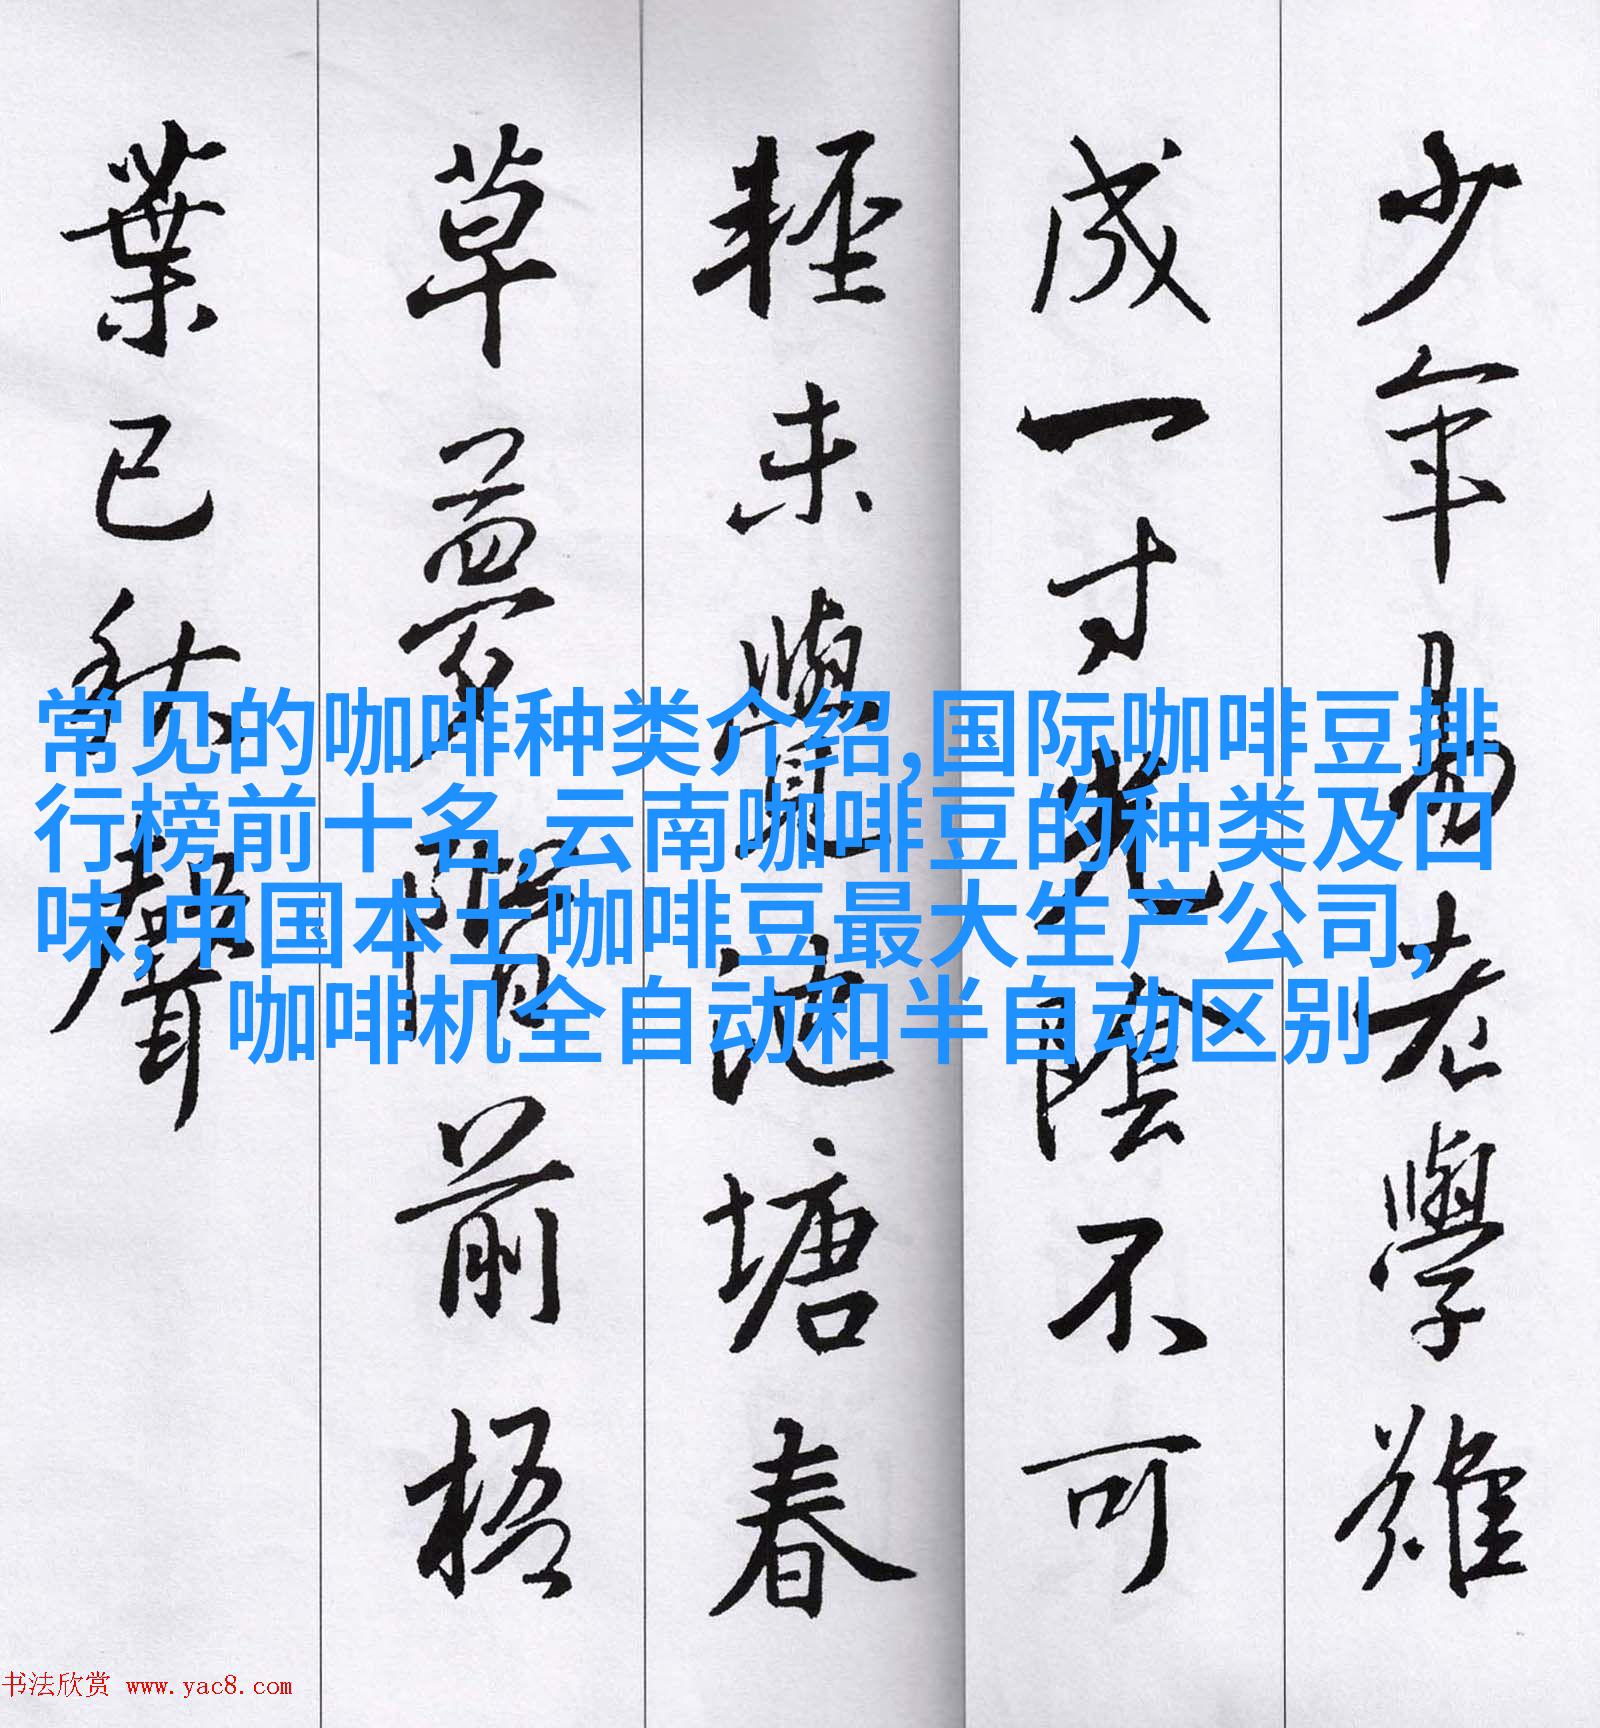 少年易老學難
成一寸光陰不可
輕未覺池塘春
草夢階前梧
葉已秋聲
常见的咖啡种类介绍,国际咖啡豆排
行榜前十名,云南咖啡豆的种类及口
味,中国本土咖啡豆最大生产公司,
咖啡机全自动和半自动区别
书法欣赏 www.yac8.com